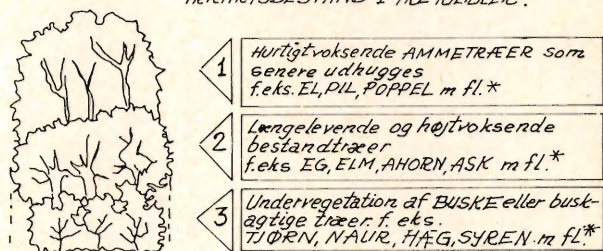 1
Hurtigtvoksende AMMETRÆER som
senere udhugges
f.eks. EL, PIL, POPPEL m fl.*
2
Længelevende og højtvoksende
bestandtræer
f.eks EG, ELM, AHORN, ASK m fl.*
3
Undervegetation af BUSKE eller busk-
agtige træer f. eks.
TJØRN, NAUR, HÆG, SYREN m fl.*